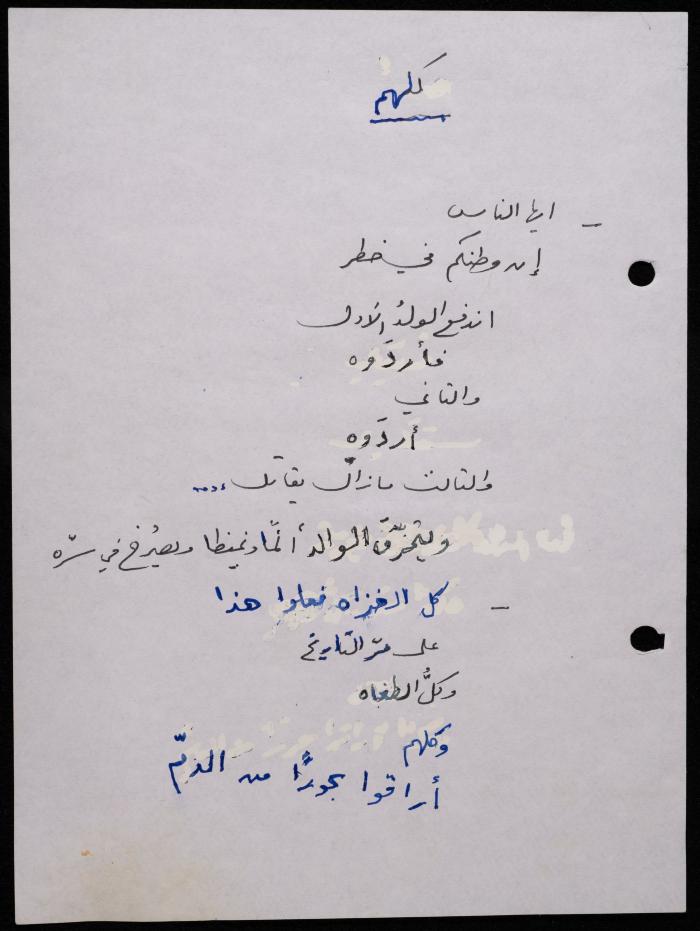 كلهم
- ايها الناس
إن وطنكم في خطر
اندفع الولدُ الاول
فأردَوه
والثاني
أردَوه
والثالث مازال يقاتل ....
ويتمزّق الوالد ألمًا وغيظا ويصرُخ في سرّه
- كل الغزاه فعلوا هذا
على مرّ التاريخ
وكلُّ الطغاه
وكلهم
أراقوا بحورًا من الدمّ